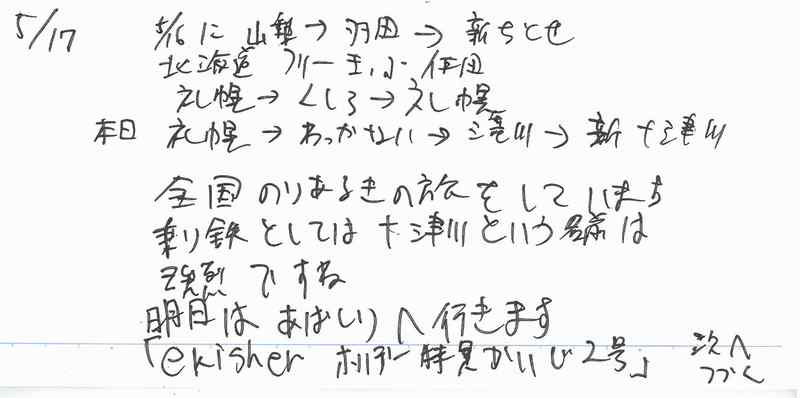 5/17 5/16に山梨→羽田→新ちとせ
北海道フリー
札幌→くしろ→札幌
本日 札幌→わっかない→滝川→新十津川
全国のりあるきの旅をしています
乗り鉄としては十津川という名前は
強烈ですね
明日はあばしりへ行きます
「ekisher ホリデー特見かいじ2号」 次へ
つづく